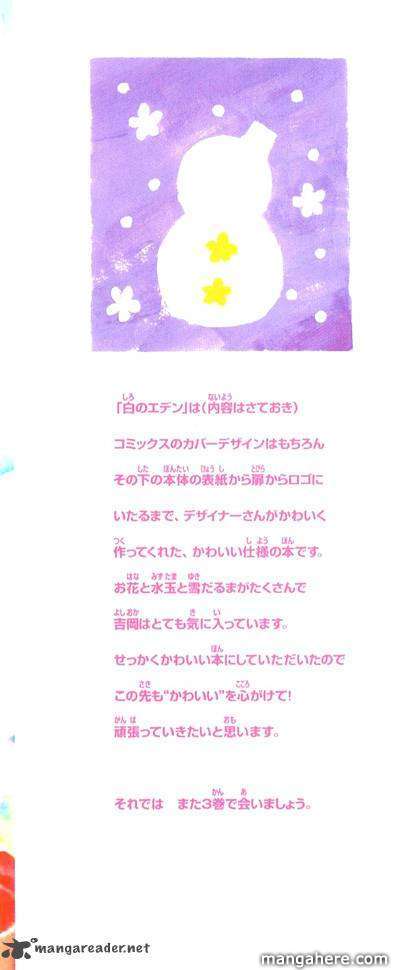 「白のエデン」は(内容はさておき)
コミックスのカバーデザインはもちろん
その下の本体の表紙から扉からロゴに
いたるまで、デザイナーさんがかわいく
作ってくれた、かわいい仕様の本です。
お花と水玉と雪だるまがたくさんで
吉岡はとても気に入っています。
せっかくかわいい本にしていただいたので
この先も“かわいい”を心がけて!
頑張っていきたいと思います。
それでは　また3巻で会いましょう。
mangareader.net
mangahere.com